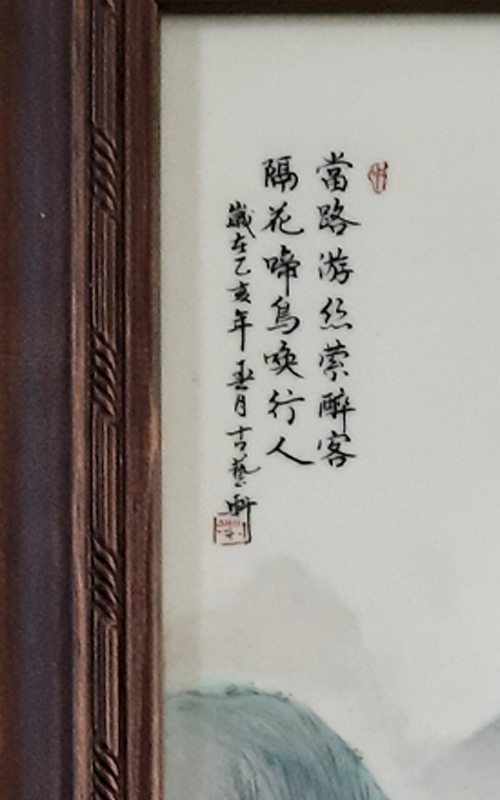 當路游丝縈醉客
隔花啼鳥喚行人
歲在乙亥年 月古藝軒